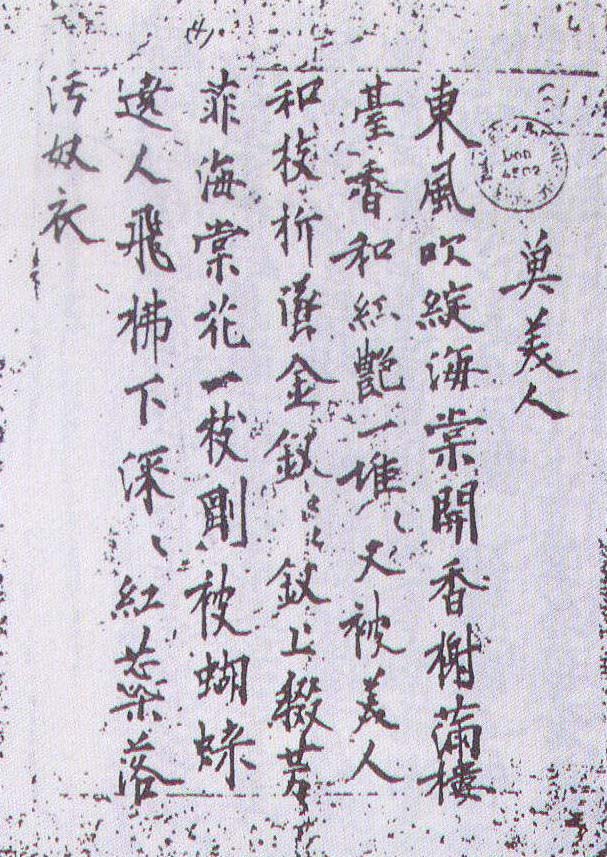 美人
東風吹綻海棠開香榭滿樓
臺香和紅艷一堆〻又被美人
和枝折金釵〻〻釵上綴芳
菲海棠花一枝剛被蝴蝶
遶人飛拂下深〻紅蘂落
污奴衣